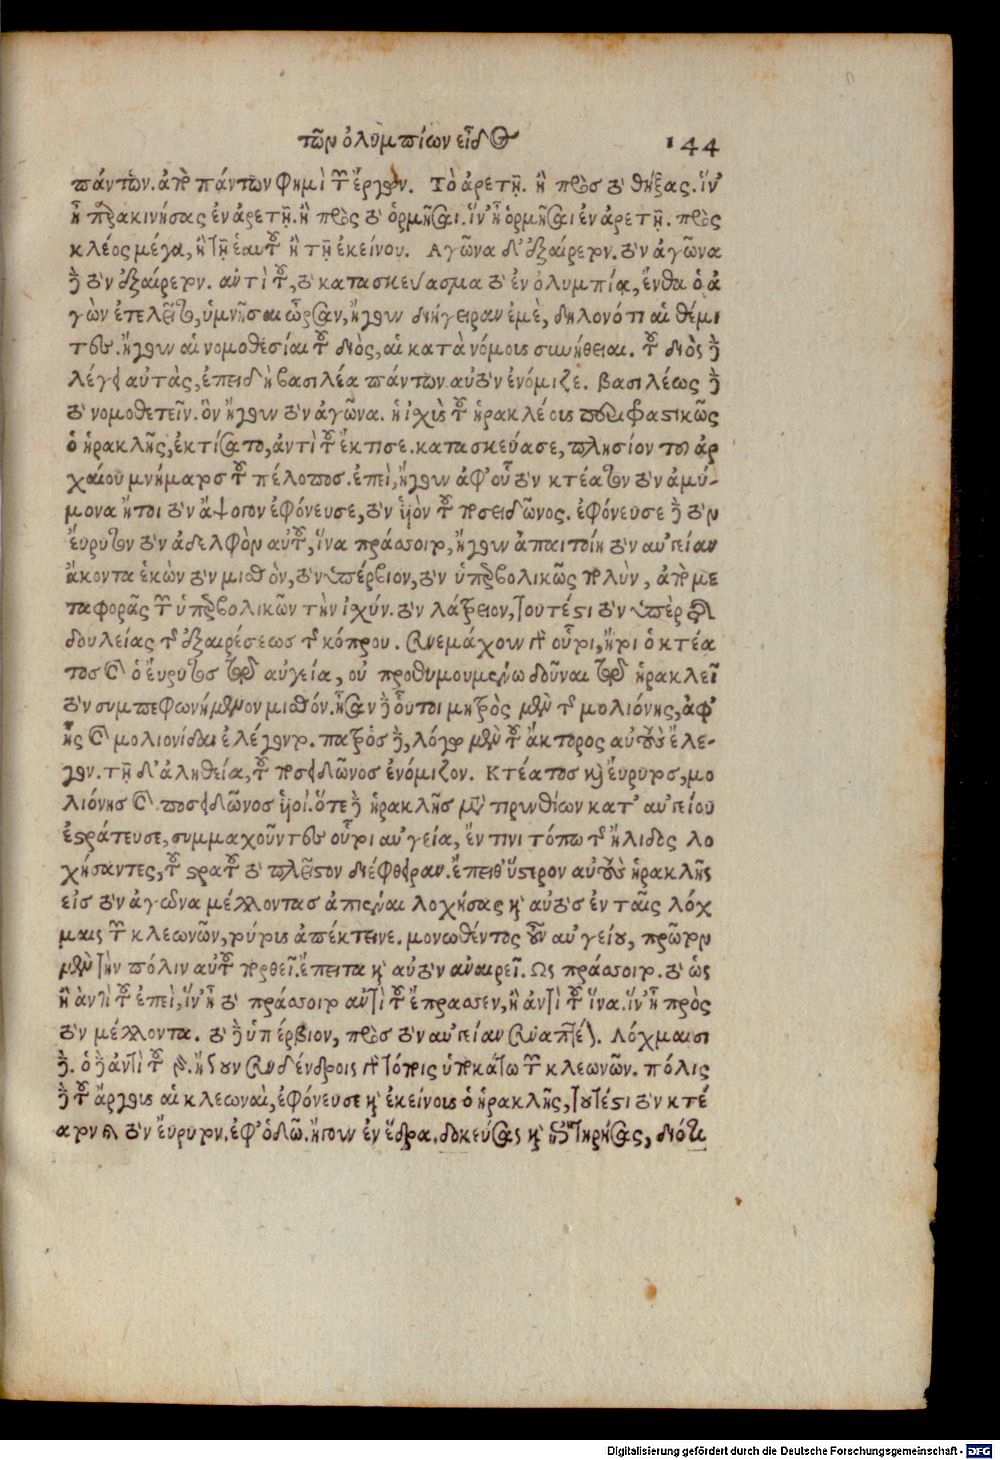 τῶν ὀλυμπίων εἶδος 144
πάντων. ἀπὸ πάντων φημὶ τῶν ἔργων. Τὸ ἀρετῇ. ἢ πρὸς τὸ θήξας. ἵν'
ᾖ παρακινήσας ἐν ἀρετῇ. ἢ πρὸς τὸ ὁρμῆσαι. ἵν' ᾖ ὁρμῆσαι ἐν ἀρετῇ. πρὸς
κλέος μέγα, ἢ τῇ ἑαυτοῦ ἢ τῇ ἐκείνου. Αγῶνα δ' ἐξαίρετον. τὸν ἀγῶνα
δὲ τὸν ἐξαίρετον. ἀντὶ τοῦ, τὸ κατασκεύασμα τὸ ἐν ὀλυμπίᾳ, ἔνθα ὁ ἀ
γὼν ἐπελεῖτο, ὑμνῆσαι ὦρσαν, ἤγουν διήγειραν ἐμὲ, δηλονότι αἱ θέμι
τες. ἤγουν αἱ νομοθεσίαι τοῦ διὸς, αἱ κατὰ νόμους συνήθειαι. τοῦ διὸς δὲ
λέγει αὐτὰς, ἐπειδὴ βασιλέα πάντων αὐτὸν ἐνόμιζε. βασιλέως δὲ
τὸ νομοθετεῖν. ὃν ἤγουν τὸν ἀγῶνα. ἡ ἰχὺς τοῦ ἡρακλέους περιφραστικῶς
ὁ ἡρακλῆς, ἐκτίσατο, ἀντὶ τοῦ ἔκτισε. κατασκεύασε, πλησίον τοῦ ἀρ
χαίου μνήματος τοῦ πέλοπος. ἐπεὶ, ἤγουν ἀφ' οὗ τὸν κτέατον τὸν ἀμύ-
μονα ἤτοι τὸν ἄψογον ἐφόνευσε, τὸν υἱὸν τοῦ ποσειδῶνος. ἐφόνευσε δὲ τὸν
εὔρυτον τὸν ἀδελφὸν αὐτοῦ, ἵνα πράσσοιτο, ἤγουν ἀπαιτοίη τὸν αὐγείαν
ἄκοντα ἑκὼν τὸν μισθὸν, τὸν ὑπέρβιον, τὸν ὑπερβολικῶς πολὺν, ἀπὸ με
ταφορᾶς τῶν ὑπερβολικῶν τὴν ἰχύν. τὸν λάτρειον, τουτέστι τὸν ὑπὲρ τῆς
δουλείας τῆς ἐξαιρέσεως τῆς κόπρου. Συνεμάχουν δὲ οὗτοι, ἤτοι ὁ κτέα
τος καὶ ὁ εὔρυτος τῷ αὐγεία, οὐ προθυμουμένῳ δοῦναι τῷ ἡρακλεῖ
τὸν συμπεφωνημένον μισθόν. ἦσαν δὲ οὗτοι μητρὸς μὲν τῆς μολιόνης, ἀφ'
ἧς καὶ μολιονίδαι ἐλέγοντο. πατρὸς δὲ, λόγῳ μὲν τοῦ ἄκτορος αὐτοὺς ἔλε-
γον. τῇ δ' ἀληθεία, τοῦ ποσειδῶνος ἐνόμιζον. Κτέατος καὶ εὔρυτος, μο
λιόνης καὶ ποσειδῶνος υἱοί. ὅτε δὲ ἡρακλῆς μετὰ τιρυνθίων κατ' αὐγείου
ἐστράτευσε, συμμαχοῦντες οὗτοι αὐγεία, ἔν τινι τόπω τῆς ἤλιδος λο
χήσαντες, τοῦ στρατοῦ τὸ πλεῖστον διέφθειραν. ἔπειθ' ὕστερον αὐτοὺς ἡρακλῆς
εἰς τὸν ἀγῶνα μέλλοντας ἀπιέναι λοχήσας καὶ αὐτὸς ἐν ταῖς λόχ
μαις τῶν κλεωνῶν, τούτους ἀπέκτεινε. μονωθέντος οὖν αὐγείου, πρῶτον
μὲν τὴν πόλιν αὐτοῦ πορθεῖ. ἔπειτα καὶ αὐτὸν ἀναιρεῖ. Ως πράσσοιτο. τὸ ὡς
ἢ ἀντὶ τοῦ ἐπεὶ, ἵν' ᾖ τὸ πράσσοιτο ἀντὶ τοῦ ἔπρασσεν, ἢ ἀντὶ τοῦ ἵνα. ἵν' ᾖ πρὸς
τὸν μέλλοντα. τὸ δὲ ὑπέρβιον, πρὸς τὸν αὐγείαν συναπτέον. Λόχμαισι
δὲ. ὁ δὲ ἀντὶ τοῦ δή. ἤγουν συνδένδροις δὲ τόποις ὑποκάτω τῶν κλεωνῶν. πόλις
δὲ τοῦ ἄργους αἱ κλεωναὶ, ἐφόνευσε καὶ ἐκείνους ὁ ἡρακλῆς, τουτέστι τὸν κτέ
ατον καὶ τὸν εὔρυτον. ἐφ' ὁδῶ. ἤγουν ἐν ἕδρα. δοκεύσας καὶ ἐπιτηρήσας, διότι
Digitalisierung gefördert durch die Deutsche Forschungsgemeinschaft - DFG